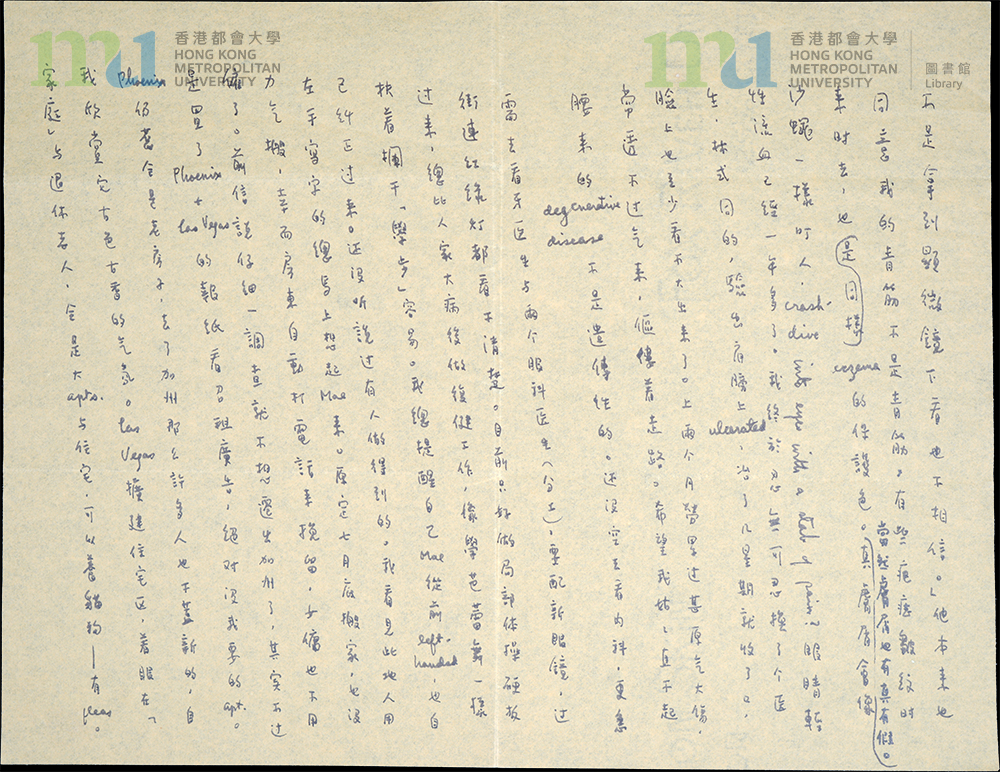 香港都會大學
HONG KONG
METROPOLITAN
UNIVERSITY
香港都會大學
HONG KONG
METROPOLITAN
UNIVERSITY
圖書館
Library
不是拿到顯微鏡下看也不相信。」他本来也
同意我的青筋不是青筋。有些疤痕皺紋时
来时去,也(是同樣)eczema的保護色。(當然膚屑也有真有假。)真膚屑會像
沙蠅一樣叮人,crash-dive into eyes with a stab of pain;眼睛輕
性流血已經一年多了。我終於忍無可忍換了个医
生,林式同的,驗出肩膀上ulcerated,治了几星期就收了口,
臉上也至少看不大出来了。上兩个月勞累过甚原气大傷,
常透不过气来,傴僂着走路。希望我姑姑直不起
腰来的degenerative disease不是遺傳性的。还沒空去看內科,更急
需去看牙医生与兩个眼科医生(分工),重配新眼鏡,过
街連紅綠灯都看不清楚。目前只好做局部体操硬板
过来,總比人家大病後做復健工作,像學芭蕾舞一樣
扶着攔干「學步」容易。我總提醒自己Mae從前left-handed,也自
己糾正过来。还沒听說过有人做得到的。我看見此地人用
左手寫字的總馬上想起Mae来。原定七月底搬家,也沒
力气搬,幸而房東自動打電話来挽留,女傭也不用
僱了。前信說仔細一調查就不想遷出加州了,其实不过
是買了Phoenix + Las Vegas的報紙看召租廣告,絕对沒我要的apt.
Phoenix仍舊全是老房子,去了加州那么許多人也不蓋新的,自
我欣賞它古色古香的气氛。Las Vegas擴建住宅区,着眼在「
家庭」与退休老人,全是大apts.与住宅,可以養貓狗——有fleas。